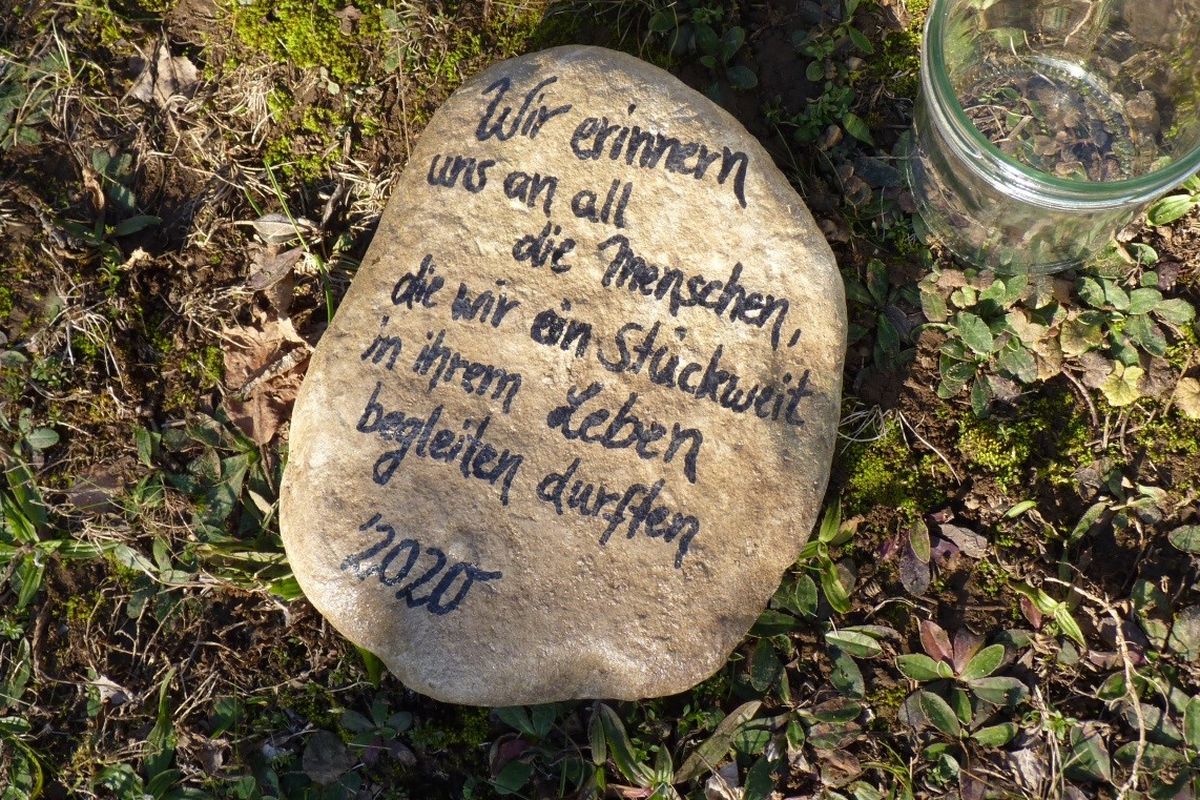 Wir erinnern
uns an all
die Menschen,
die wir ein Stückweit
in ihrem Leben
begleiten durften
'2020